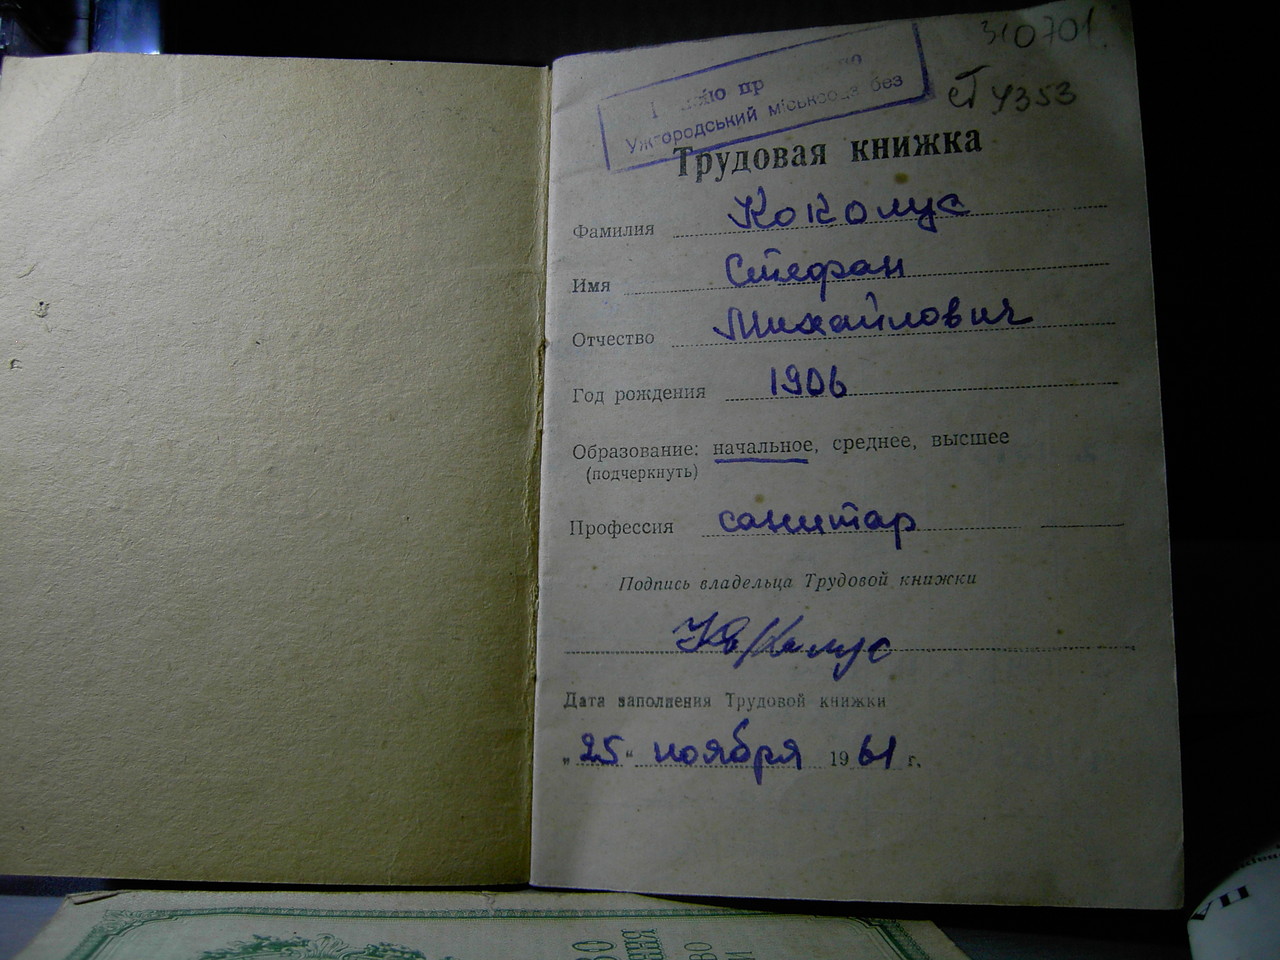 310701.
ст 4353
Ужгородський міськсобез
Трудовая книжка
Фамилия Коколус
Имя Стефан
Отчество Михайлович
Год рождения 1906
Образование: начальное, среднее, высшее
(подчеркнуть)
Профессия санитар
Подпись владельца Трудовой книжки
Дата заполнения Трудовой книжки
„25“ ноября 1961 г.